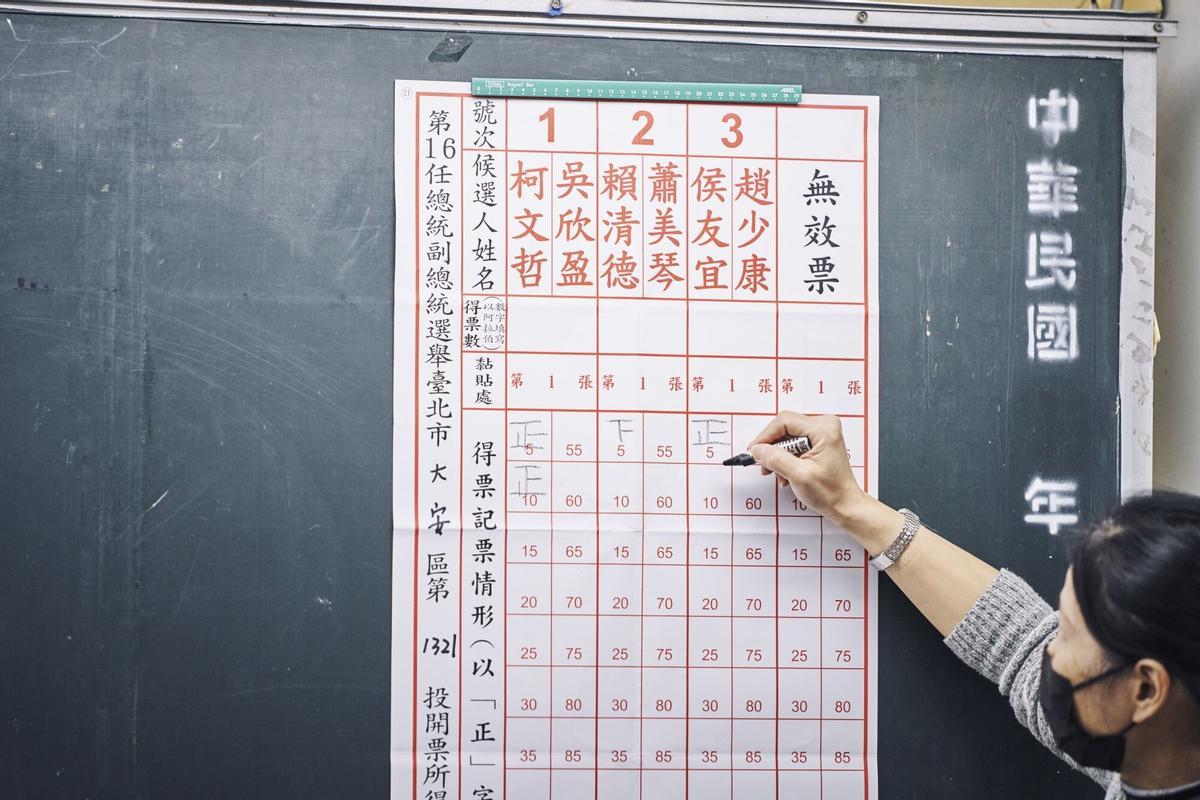 ㉑
第16任總統副總統選舉臺北市大安區第1321投開票所得
號次 1 2 3
候選人姓名 柯文哲 吳欣盈 賴清德 蕭美琴 侯友宜 趙少康 無效票
得票數(以阿拉伯數字填寫)
黏貼處 第1張 第1張 第1張 第1張
得票記票情形(以「正」字
正 下 正
5 55 5 55 5
正
10 60 10 60 10 60 10
15 65 15 65 15 65 15 65
20 70 20 70 20 70 20 70
25 75 25 75 25 75 25 75
30 80 30 80 30 80 30 80
35 85 35 85 35 85 35 85
中華民國 年